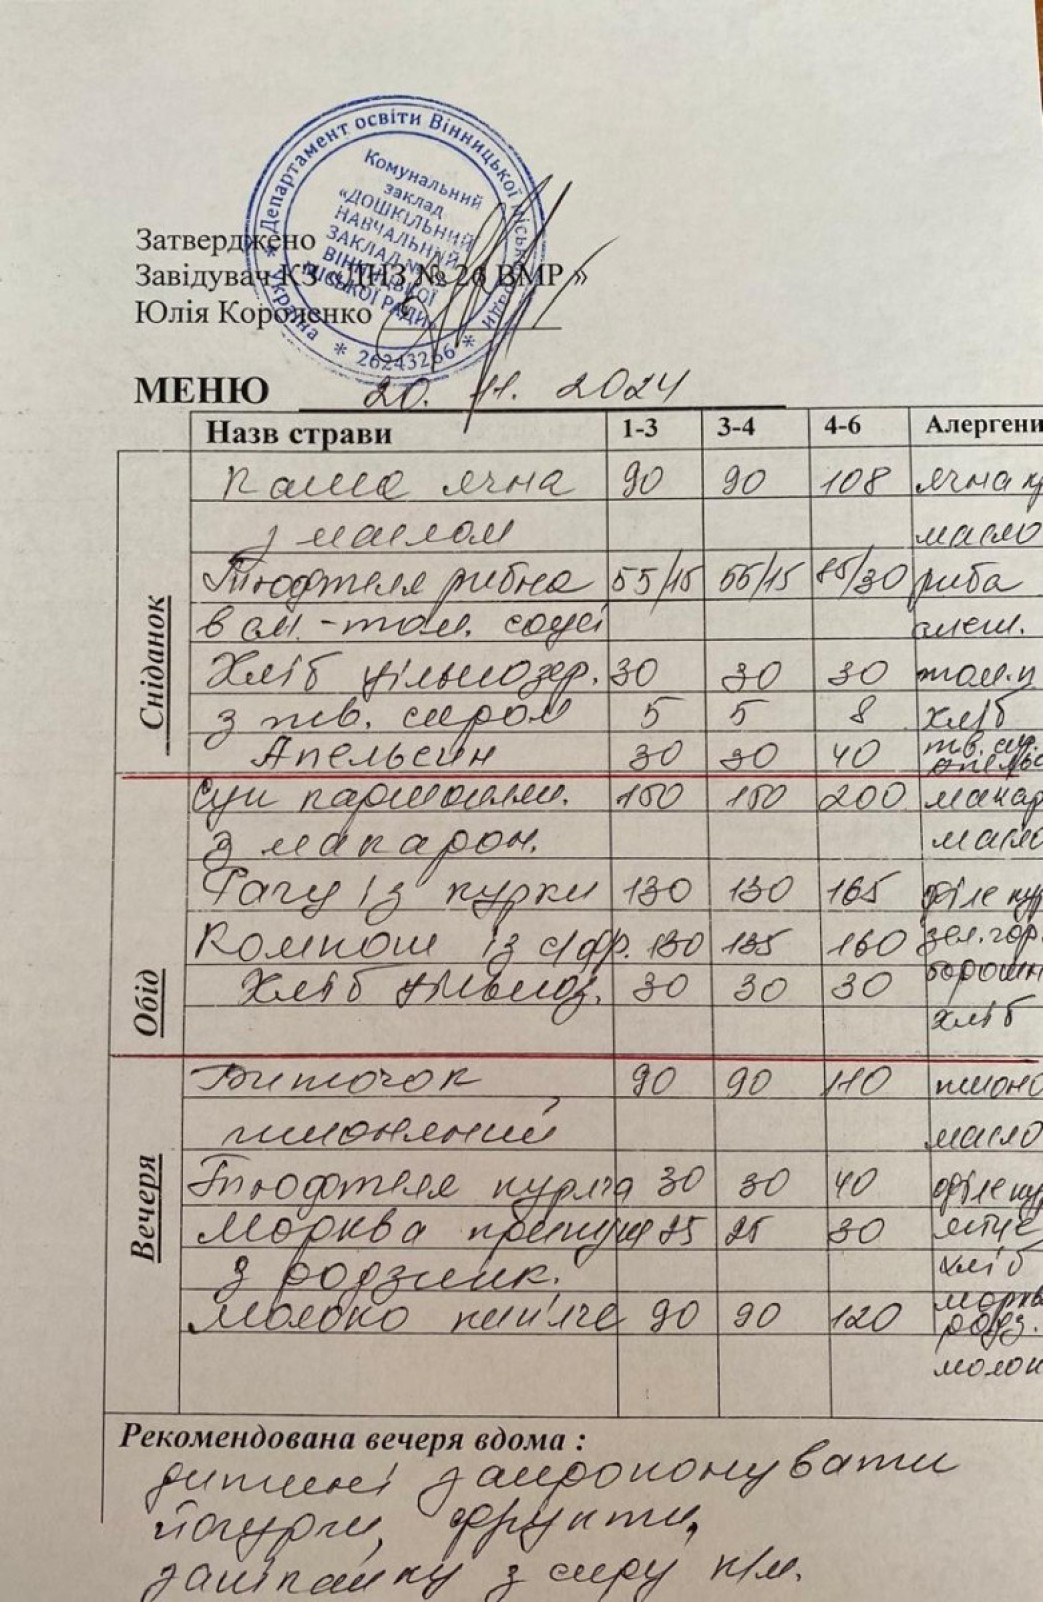 Департамент освіти Вінницької міської ради
* Україна * 26243266 *
Комунальний
заклад
«ДОШКІЛЬНИЙ
НАВЧАЛЬНИЙ
ЗАКЛАД №
ВІННИЦЬКОЇ
МІСЬКОЇ РАДИ»
Затверджено
Завідувач КЗ «ДНЗ № 26 ВМР »
Юлія Короленко
МЕНЮ 20. 11. 2024
Назв страви 1-3 3-4 4-6 Алергени
Сніданок
Каша ячна 90 90 108 ячна к
з маслом масло
Тюфтеля рибна 55/15 55/15 85/30 риба
в см.-том. соусі смет.
Хліб цільнозер. 30 30 30 том.п
з тв. сиром 5 5 8 хліб
тв. сир.
Апельсин 30 30 40 апельс
Обід
Суп картопли. 150 150 200 макар
з макарон. масло
Рагу із курки 130 130 165 філе кур
Компот із с/фр. 130 135 160 зел.гор.
Хліб цільноз. 30 30 30 борошн
хліб
Вечеря
Биточок 90 90 110 пшоно
пшоняний масло
Тюфтеля куряча 30 30 40 філе кур
Морква припущ 25 25 30 яйце
з родзинк. хліб
морква
Молоко кип'яче 90 90 120 родз.
молок
Рекомендована вечеря вдома :
дитині запропонувати
йогурти, фрукти,
запіканку з сиру к/м.